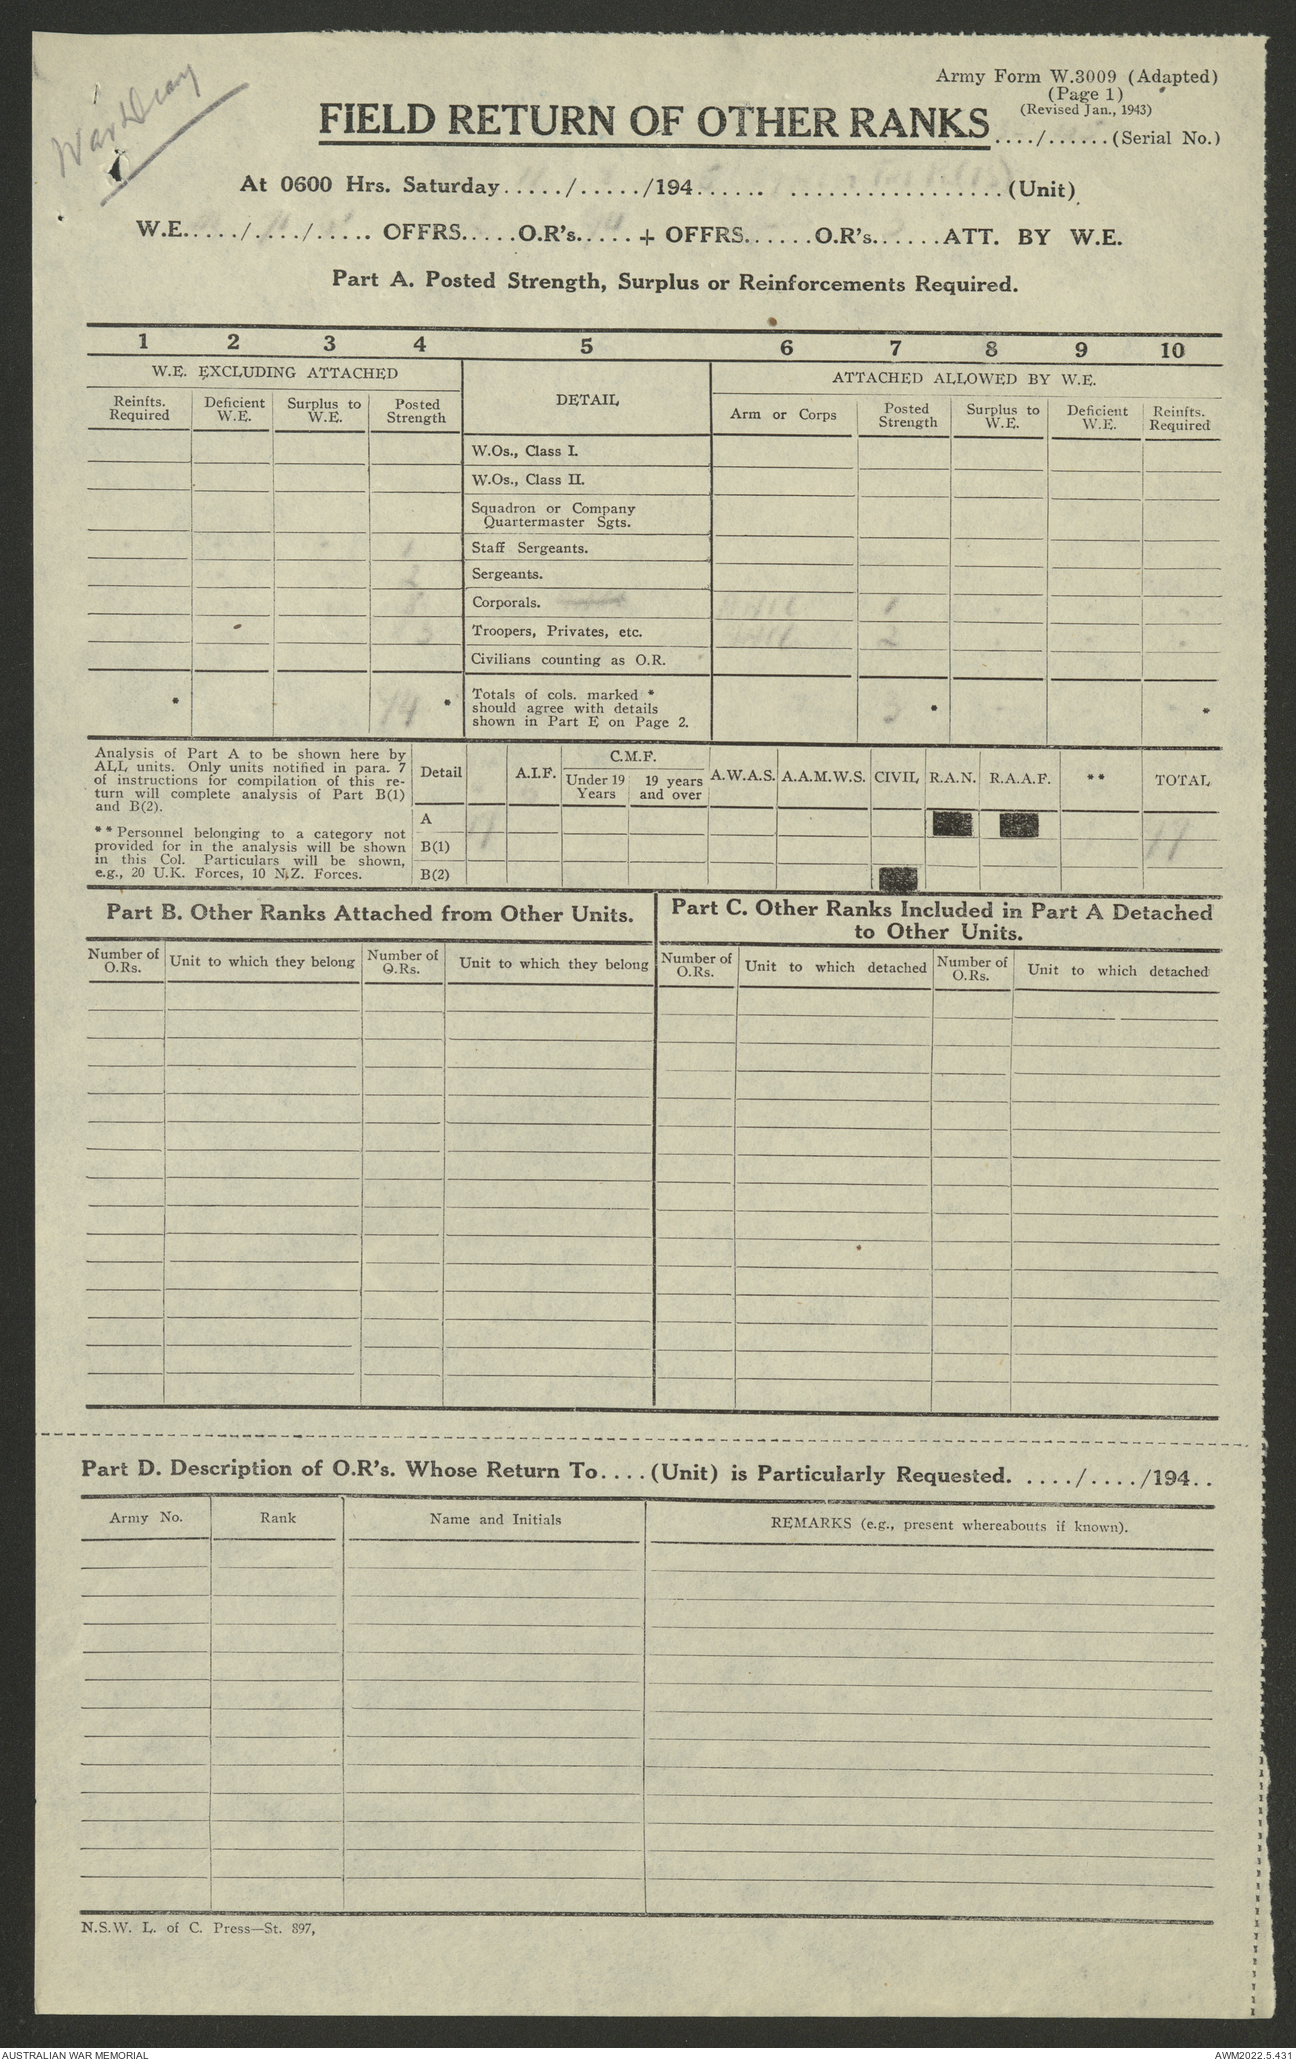 War Diary
Army Form W.3009 (Adapted)
(Page 1)
(Revised Jan., 1943)
FIELD RETURN OF OTHER RANKS ..../......(Serial No.)
At 0600 Hrs. Saturday...../...../194...... ..................(Unit)
W.E...../..../..... OFFRS.....O.R's..... + OFFRS......O.R's......ATT. BY W.E.
Part A. Posted Strength, Surplus or Reinforcements Required.
1 2 3 4 5 6 7 8 9 10
W.E. EXCLUDING ATTACHED
DETAIL
ATTACHED ALLOWED BY W.E.
Reinfts. Required
Deficient W.E.
Surplus to W.E.
Posted Strength
Arm or Corps
Posted Strength
Surplus to W.E.
Deficient W.E.
Reinfts. Required
W.Os., Class I.
W.Os., Class II.
Squadron or Company
Quartermaster Sgts.
1 Staff Sergeants.
2 Sergeants.
Corporals. 1
Troopers, Privates, etc. 2
Civilians counting as O.R.
* 14 *
Totals of cols. marked *
should agree with details
shown in Part E on Page 2.
3 * *
Analysis of Part A to be shown here by
ALL units. Only units notified in para. 7
of instructions for compilation of this re-
turn will complete analysis of Part B(1)
and B(2).
** Personnel belonging to a category not
provided for in the analysis will be shown
in this Col. Particulars will be shown,
e.g., 20 U.K. Forces, 10 N.Z. Forces.
Detail
A.I.F.
C.M.F.
Under 19 Years
19 years and over
A.W.A.S.
A.A.M.W.S.
CIVIL
R.A.N.
R.A.A.F.
**
TOTAL
A 17 17
B(1)
B(2)
Part B. Other Ranks Attached from Other Units.
Part C. Other Ranks Included in Part A Detached
to Other Units.
Number of O.Rs.
Unit to which they belong
Number of O.Rs.
Unit to which they belong
Number of O.Rs.
Unit to which detached
Number of O.Rs.
Unit to which detached
Part D. Description of O.R's. Whose Return To....(Unit) is Particularly Requested. ..../..../194..
Army No.
Rank
Name and Initials
REMARKS (e.g., present whereabouts if known).
N.S.W. L. of C. Press—St. 897,
AUSTRALIAN WAR MEMORIAL
AWM2022.5.431